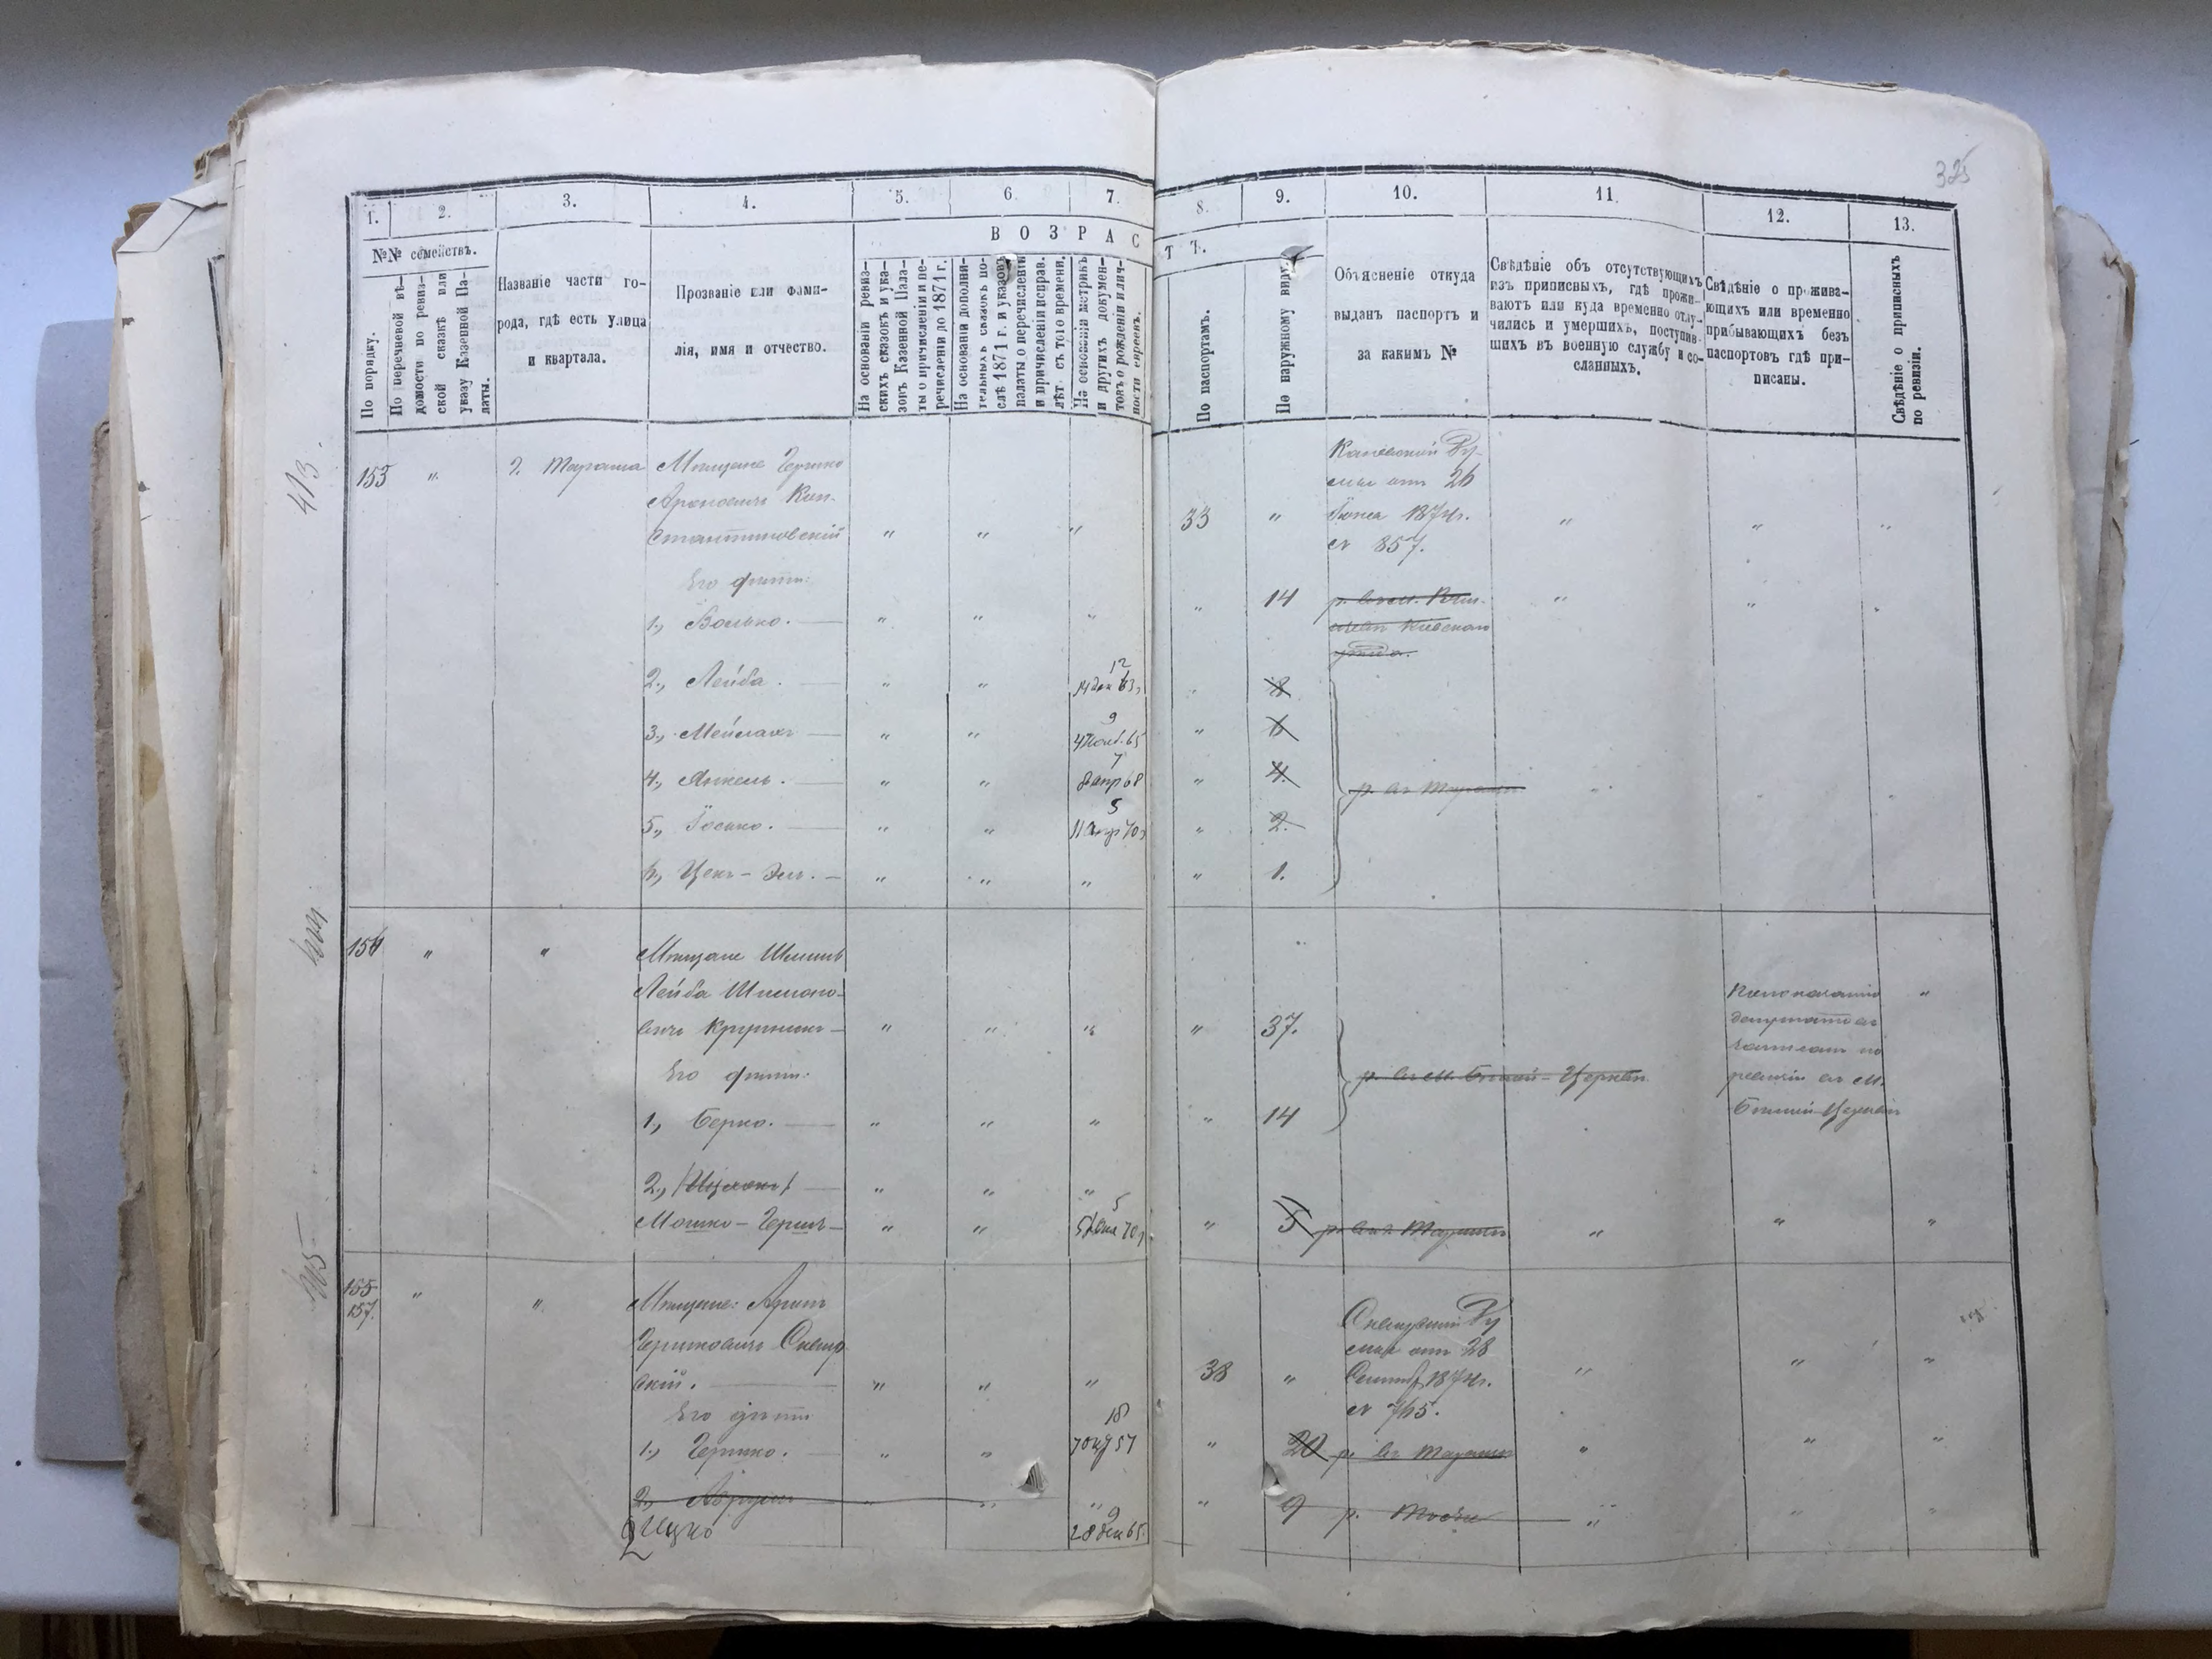 325
1.
2.
3.
4.
5.
6.
7.
8.
9.
10.
11.
12.
13.
№№ семействъ.
По порядку.
По перечневой вѣ-
домости по ревиз-
ской сказкѣ или
указу Казенной Па-
латы.
Названіе части го-
рода, гдѣ есть улица
и квартала.
Прозваніе или фами-
лія, имя и отчество.
ВОЗРАСТЪ.
На основаніи ревиз-
скихъ сказокъ и ука-
зовъ Казенной Пала-
ты о причисленіи и пе-
речисленіи до 1871 г.
На основаніи дополни-
тельныхъ сказокъ по-
слѣ 1871 г. и указовъ
палаты о перечисленіи
и причисленіи исправ.
лѣт. съ того времени.
На основаніи метрикъ
и другихъ докумен-
товъ о рожденіи и лич-
ности евреевъ.
По паспортамъ.
По наружному виду.
Объясненіе откуда
выданъ паспортъ и
за какимъ №
Свѣдѣніе объ отсутствующихъ
изъ приписныхъ, гдѣ прожи-
ваютъ или куда временно отлу-
чились и умершихъ, поступив-
шихъ въ военную службу и со-
сланныхъ.
Свѣдѣніе о прожива-
ющихъ или временно
прибывающихъ безъ
паспортовъ гдѣ при-
писаны.
Свѣдѣніе о приписныхъ
по ревизіи.
413.
153 " г. Тараща Мѣщане Гершко
Ароновичъ Кон-
стантиновскій " " " 33 " " " "
Каневской Ду-
мы отъ 26
Іюня 1874г.
№ 857.
Его дѣти:
1., Волько. " " " " 14 " " "
2., Лейба. " " 12 14 дек 63 "
3., Мейлахъ " " 9 4 Нояб. 65 " 6
4., Янкель. " " 7 8 апр 68 " 4.
5., Іосько. " " 5 11 апр 70 " 2.
6., Цекъ-Эль. " " " " 1.
р. въ Таращѣ
154 " " Мѣщане
Лейба Шимоно-
вичъ Крупникъ " " " " 37.
Его дѣти:
р. въ м. Бѣлой-Церкви
1., Берко. " " " " 14
по
ревизіи въ м.
Бѣлой-Церкви
"
2., /Ицхокъ/ " " "
Мошко-Гершъ " " 5 70 " 5 р. въ г. Таращѣ " " "
155
157. " " Мѣщане: Аронъ
Гершковичъ Сквир-
скій. " " " 38 " " " "
Сквирской Ду
мы отъ 28
Сентяб 1874г.
№ 765.
Его дѣти
1., Гершко. " " 18 57 " 20 р. въ Таращѣ " " "
2., " " " " 9 р. " " "
2 Ицко 9 28 дек 65.